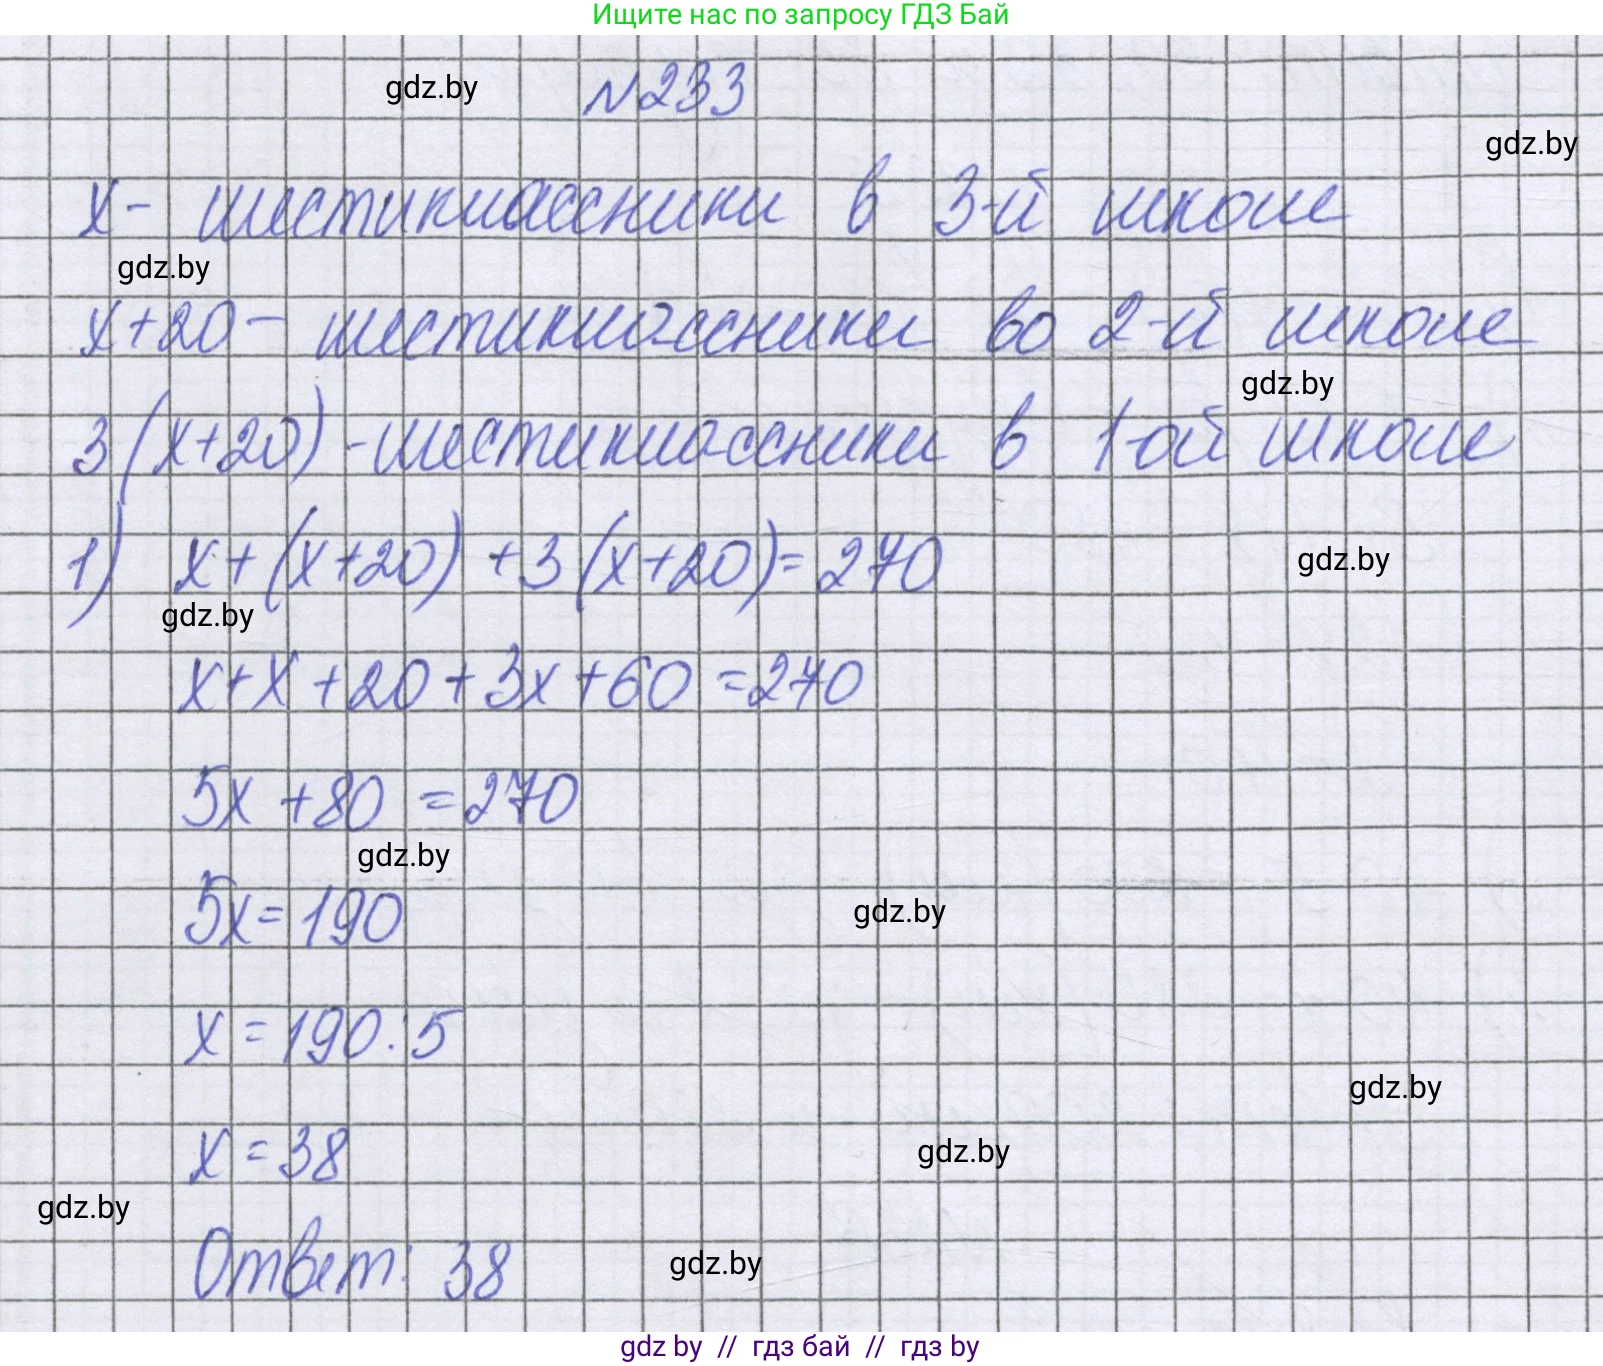 Ищите нас по запросу ГДЗ Бай
gdz.by
№233
gdz.by
x - шестиклассники в 3-й школе
gdz.by
x+20 - шестиклассники во 2-й школе
gdz.by
3(x+20) - шестиклассники в 1-ой школе
1) x+(x+20)+3(x+20)=270
gdz.by
gdz.by
x+x+20+3x+60=270
5x+80=270
gdz.by
5x=190
gdz.by
x=190:5
gdz.by
x=38
gdz.by
gdz.by
Ответ: 38
gdz.by
gdz by // гдз бай // гдз by